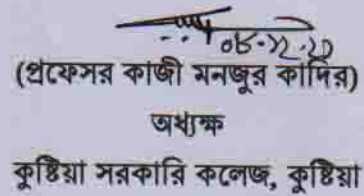 ০৮-১২-২০
(প্রফেসর কাজী মনজুর কাদির)
অধ্যক্ষ
কুষ্টিয়া সরকারি কলেজ, কুষ্টিয়া